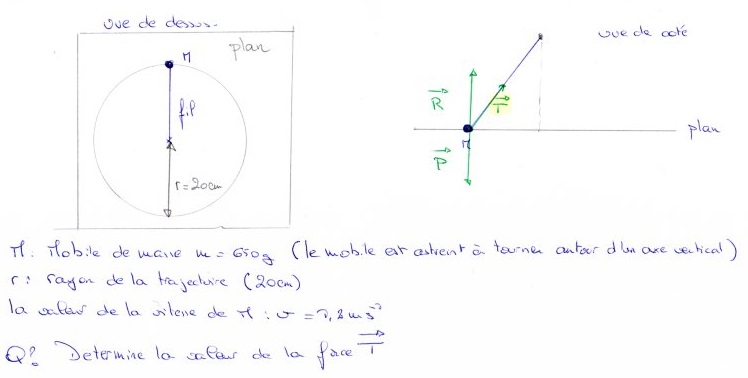 vue de dessus.
plan
M
fil
r = 20cm
vue de coté
R
T
plan
M
P
M : Mobile de masse m = 650g (le mobile est astreint à tourner autour d'un axe vertical)
r : rayon de la trajectoire (20cm)
la valeur de la vitesse de M : v = m s⁻¹
Q? Determine la valeur de la force T